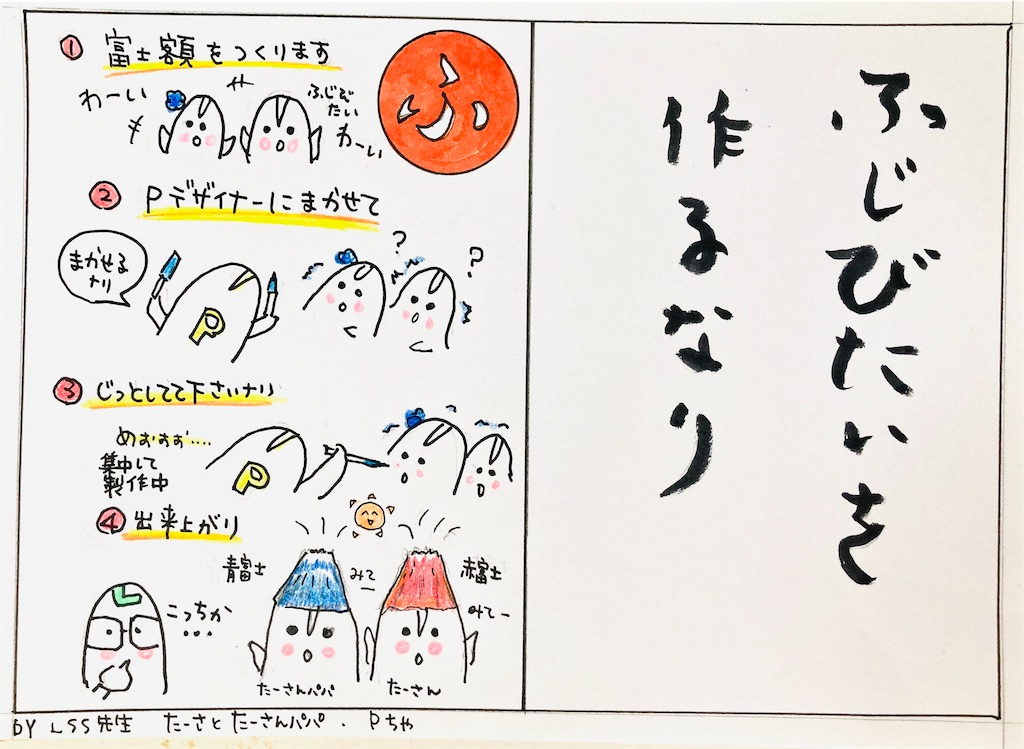 ふじびたいを
作るなり
ふ
① 富士額をつくります
わーい
ふじび
たい
わーい
② Pデザイナーにまかせて
まかせる
ナリ
P
?
?
③ じっとしてて下さいナリ
めおおお....
集中して
製作中
P
④ 出来上がり
青富士
みてー
赤富士
みてー
L
こっちか
...
たーさんパパ
たーさん
BY LSS先生 たーさとたーさんパパ.Pちゃ